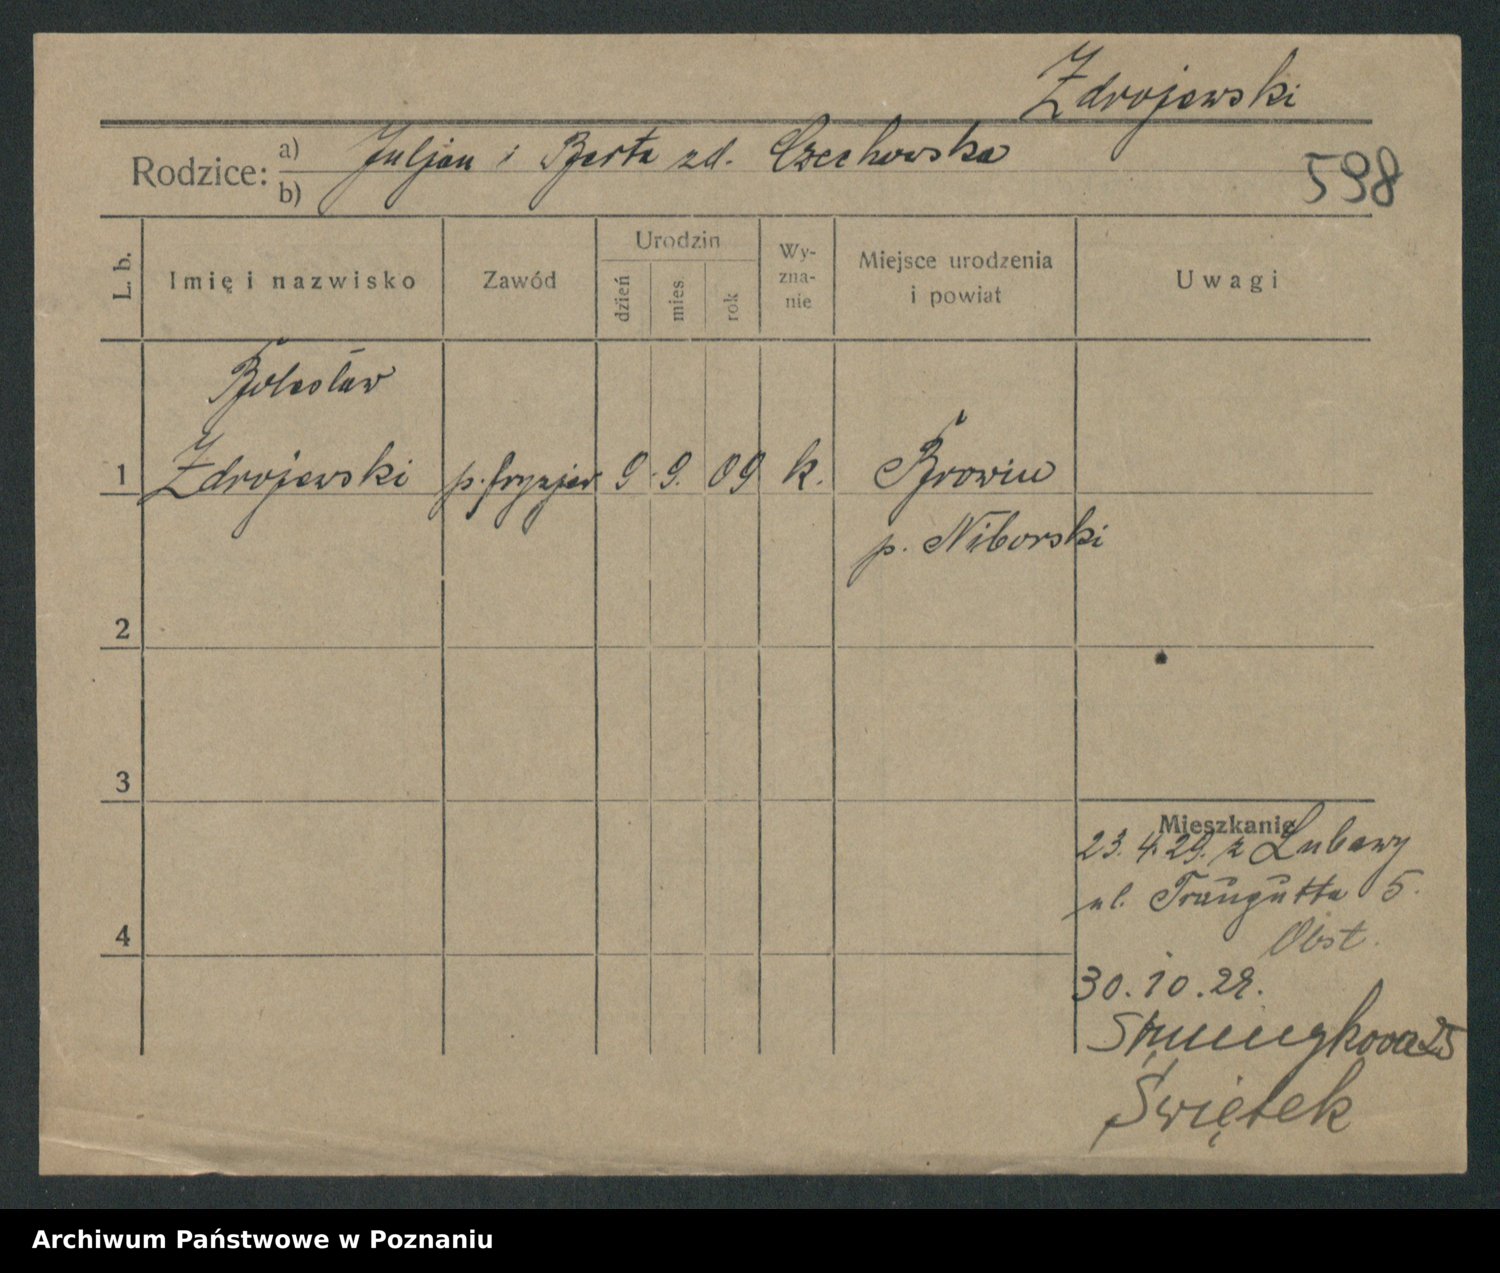 Zdrojewski
Rodzice: a) b) Juljan i Berta zd. Czechowska
598
L. b.
Imię i nazwisko
Zawód
Urodzin
dzień
mies.
rok
Wy-
zna-
nie
Miejsce urodzenia
i powiat
Uwagi
Bolesław
1 Zdrojewski p. fryzjer 9. 9. 09 k. Browin
p. Niborski
2
3
4
Mieszkanie
23. 4. 29. z Lubawy
ul. Traugutta 5.
Obst.
30. 10. 29.
25
Świętek
Archiwum Państwowe w Poznaniu